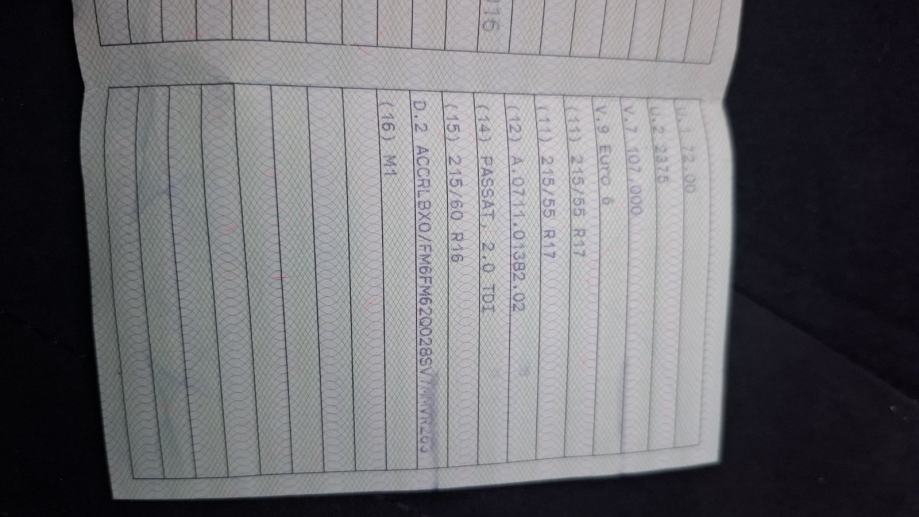 016
U.1 72.00
U.2 2375
V.7 107.000
V.9 Euro 6
(11) 215/55 R17
(11) 215/55 R17
(12) A.0711.01382.02
(14) PASSAT, 2.0 TDI
(15) 215/60 R16
D.2 ACCRLBX0/FM6FM62Q028SV
(16) M1